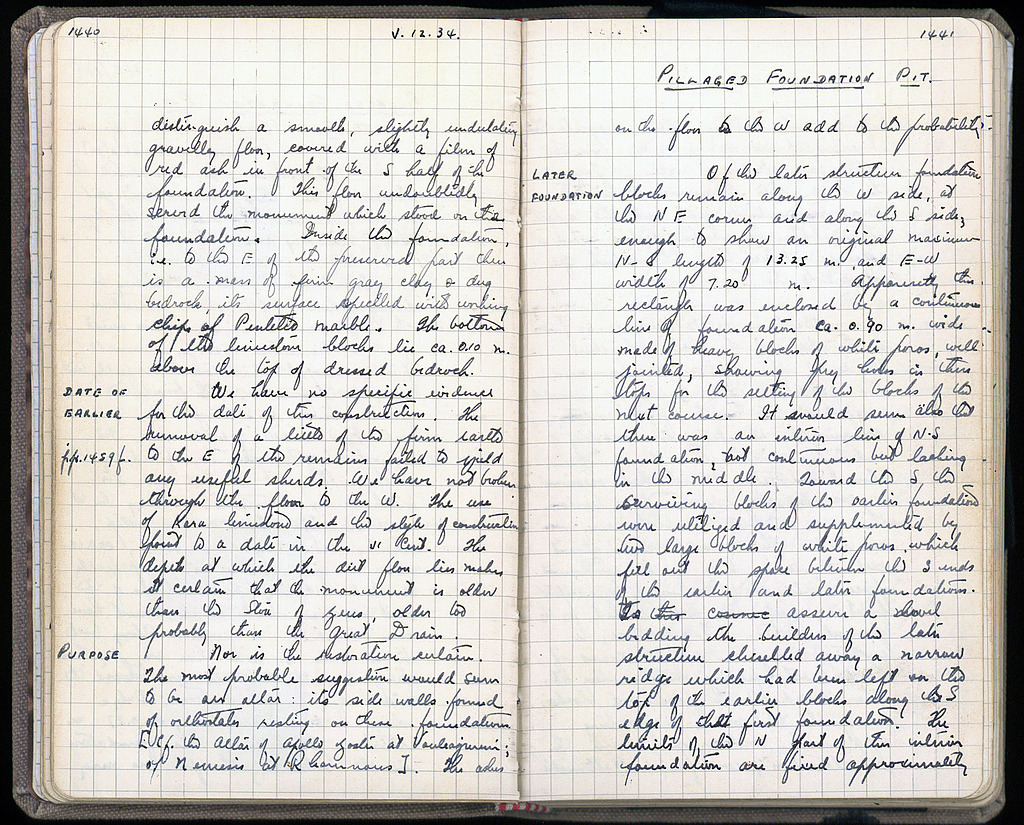 1440
V. 12. 34.
distinguish a smooth, slightly undulating
gravelly floor, covered with a film of
red ash in front of the S half of the
foundation. This floor undoubtedly
served the monument which stood on the
foundation. Inside the foundation,
i.e. to the E of the preserved part there
is a mass of firm gray clay & dug
bedrock, its surface speckled with working
chips of Pentelic marble. The bottom
of the limestone blocks lie ca. 0.10 m.
above the top of dressed bedrock.
DATE OF
EARLIER
pp. 1459 f.
We have no specific evidence
for the date of this construction. The
removal of a little of the firm earth
to the E of the remains failed to yield
any useful sherds. We have not broken
through the floor to the W. The use
of Kara limestone and the style of construction
point to a date in the VI cent. The
depth at which the dirt floor lies makes
it certain that the monument is older
than the Stoa of Zeus older too
probably than the Great Drain.
PURPOSE
Nor is the restoration certain.
The most probable suggestion would seem
to be an altar: its side walls formed
of orthostates resting on these foundations
[Cf. the Altar of Apollo Zoster at Vouliagmeni;
of Nemesis at Rhamnous]. The ashes
1441
PILLAGED FOUNDATION PIT.
on the floor to the W add to the probability.
LATER
FOUNDATION
Of the later structure foundation
blocks remain along the W side, at
the NE corner and along the S side,
enough to show an original maximum
N-S length of 13.25 m. and E-W
width of 7.20 m. Apparently this
rectangle was enclosed by a continuous
line of foundation ca. 0.90 m. wide
made of heavy blocks of white poros, well
jointed, showing pry holes in their
tops for the setting of the blocks of the
next course. It would seem also that
there was an interior line of N-S
foundation, not continuous but lacking
in the middle. Toward the S the
surviving blocks of the earlier foundation
were utilized and supplemented by
two large blocks of white poros which
fill out the space between the S ends
of the earlier and later foundations.
To assure a level
bedding the builders of the later
structure chiselled away a narrow
ridge which had been left on the
top of the earlier blocks along the S
edge of that first foundation. The
limits of the N part of this interior
foundation are fixed approximately